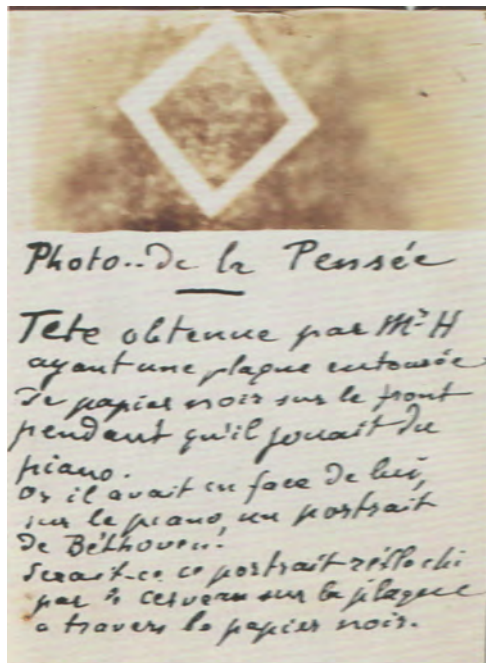 Photo.. de la Pensée
Tete obtenue par Mr H
ayant une plaque entourée
de papier noir sur le front
pendant qu'il jouait du
piano.
or il avait en face de lui,
sur le piano, un portrait
de Béthoven.
Serait-ce ce portrait réflechi
par le cerveau sur la plaque
a travers le papier noir.